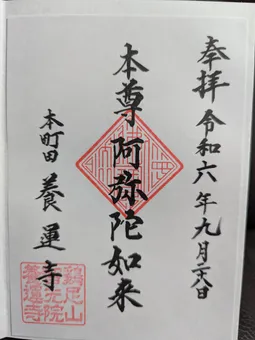 奉拝 令和六年九月二八日
本尊 阿弥陀如来
本町田 養運寺
鶏足山
宝光院
養運寺